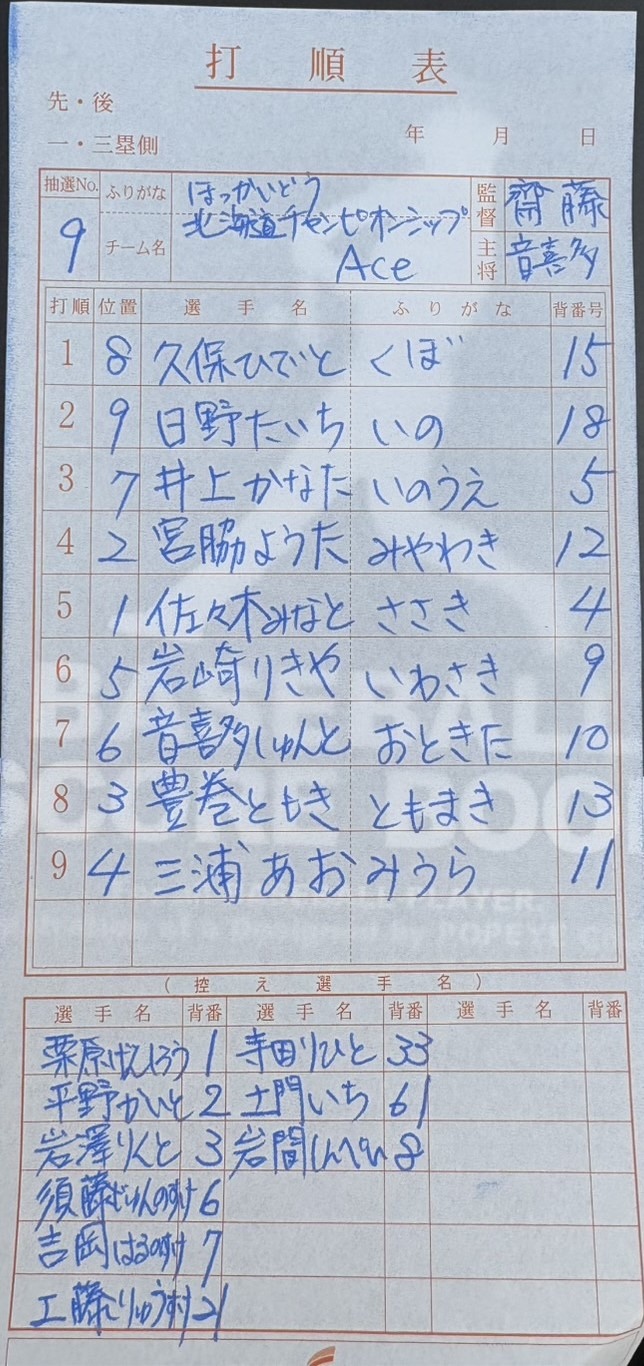 打順表
先・後
一・三塁側
年 月 日
抽選No. ふりがな ほっかいどう 監督 齋藤
9 チーム名 北海道チャンピオンシップ
Ace 主将 音喜多
打順 位置 選手名 ふりがな 背番号
1 8 久保ひでと くぼ 15
2 9 日野たいち いの 18
3 7 井上かなた いのうえ 5
4 2 宮脇ようた みやわき 12
5 1 佐々木みなと ささき 4
6 5 岩崎りきや いわさき 9
7 6 音喜多しゅんと おときた 10
8 3 豊巻ともき ともまき 13
9 4 三浦あお みうら 11
(控え選手名)
選手名 背番 選手名 背番 選手名 背番
栗原げんしろう 1 寺田りひと 33
平野かいと 2 土門いち 61
岩澤りくと 3 岩間しんぺい 8
須藤じゅんのすけ 6
吉岡はるのすけ 7
工藤りゅうすけ 21